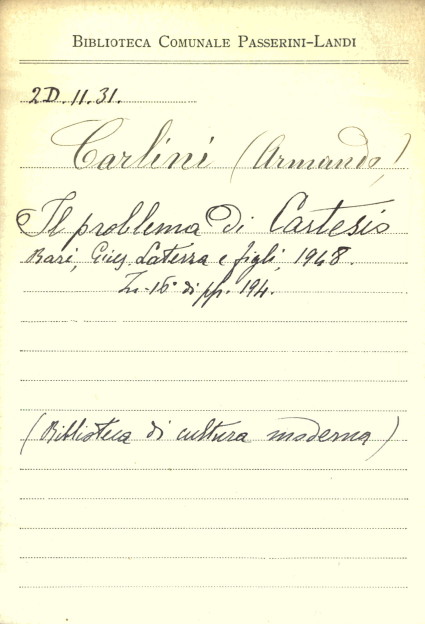 BIBLIOTECA COMUNALE PASSERINI-LANDI
2D.11.31.
Carlini (Armando)
Il problema di Cartesio
Bari, Gius. Laterza e figli, 1948.
In-16° di pp. 194.
(Biblioteca di cultura moderna)